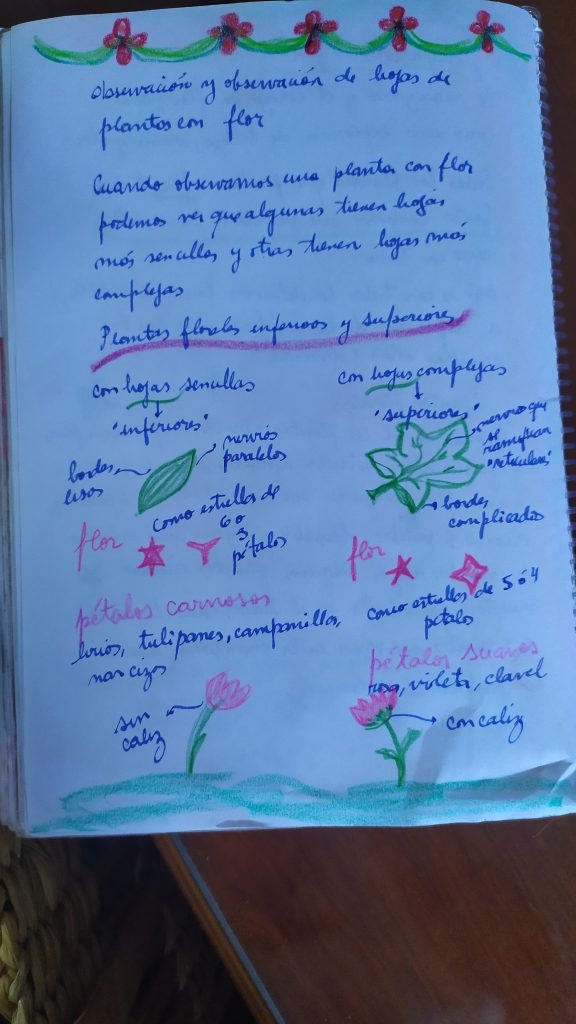 Observación y observación de hojas de
plantas con flor
Cuando observamos una planta con flor
podemos ver que algunas tienen hojas
más sencillas y otras tienen hojas más
complejas
Plantas florales inferiores y superiores
con hojas sencillas
"inferiores"
bordes
lisos
nervios
paralelos
como estrellas de
6 o
3
pétalos
flor
pétalos carnosos
lirios, tulipanes, campanillas,
narcizos
sin
caliz
con hojas complejas
"superiores"
nervios que
se
ramifican
"reticulares"
bordes
complicados
flor
como estrellas de 5 ó 4
petalos
pétalos suaves
rosa, violeta, clavel
con caliz